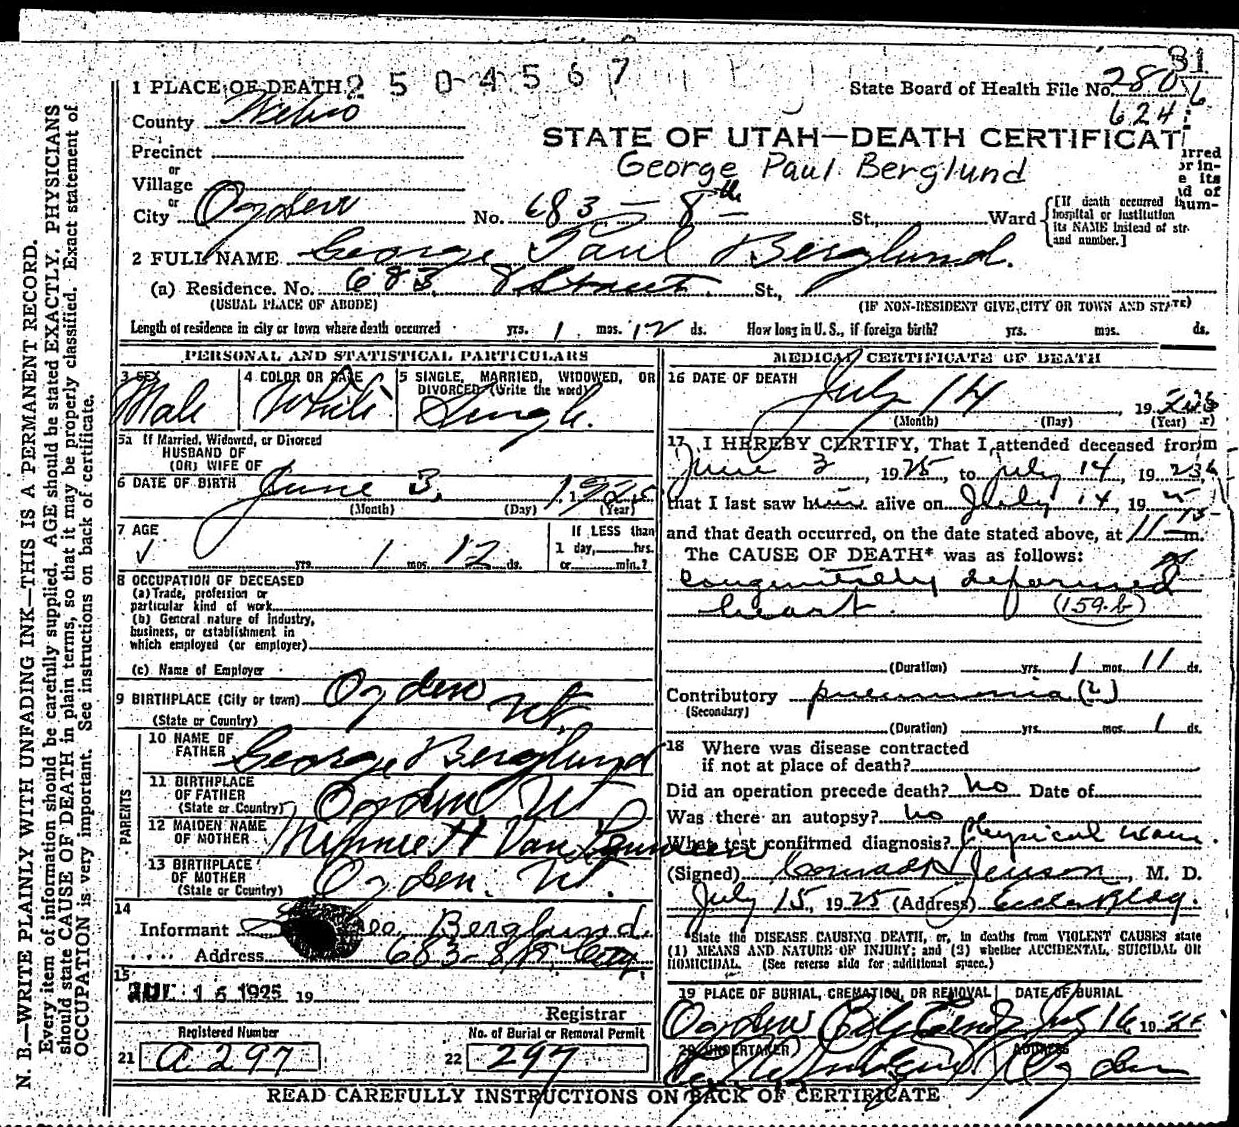 81
2504567
1 PLACE OF DEATH
State Board of Health File No. 280
624
County
STATE OF UTAH—DEATH CERTIFICAT
Precinct
George Paul Berglund
or
Village
or
City Ogden No. 683 - 8th St., Ward
[If death occurred
hospital or institution
its NAME instead of str-
and number.]
2 FULL NAME George Paul Berglund.
(a) Residence. No. 683 8 Street St.,
(USUAL PLACE OF ABODE) (IF NON-RESIDENT GIVE CITY OR TOWN AND STATE)
Length of residence in city or town where death occurred yrs. 1 mos. 12 ds. How long in U. S., if foreign birth? yrs. mos. ds.
PERSONAL AND STATISTICAL PARTICULARS
3 SEX Male
4 COLOR OR RACE White
5 SINGLE, MARRIED, WIDOWED, OR
DIVORCED (Write the word)
Single.
5a If Married, Widowed, or Divorced
HUSBAND OF
(OR) WIFE OF
6 DATE OF BIRTH June 3, 1925
(Month) (Day) (Year)
7 AGE
yrs. 1 mos. 12 ds.
If LESS than
1 day, hrs.
or min.?
8 OCCUPATION OF DECEASED
(a) Trade, profession or
particular kind of work
(b) General nature of Industry,
business, or establishment in
which employed (or employer)
(c) Name of Employer
9 BIRTHPLACE (City or town) Ogden
(State or Country) Ut.
PARENTS
10 NAME OF
FATHER George Berglund
11 BIRTHPLACE
OF FATHER
(State or Country) Ogden Ut
12 MAIDEN NAME
OF MOTHER Minnie H Van
13 BIRTHPLACE
OF MOTHER
(State or Country) Ogden. Ut.
14
Informant Geo. Berglund.
Address 683-8th City.
15
JUL 15 1925 19
Registrar
Registered Number
21 a 297
No. of Burial or Removal Permit
22 297
MEDICAL CERTIFICATE OF DEATH
16 DATE OF DEATH
July 14 19
(Month) (Day) (Year)
17 I HEREBY CERTIFY, That I attended deceased from
June 3 1925, to July 14, 19
that I last saw him alive on July 14 19
and that death occurred, on the date stated above, at 11 m.
The CAUSE OF DEATH* was as follows:
congenitally deformed
heart. (159.b)
(Duration) yrs. 1 mos. 11 ds.
Contributory pneumonia (2)
(Secondary)
(Duration) yrs. mos. 1 ds.
18 Where was disease contracted
if not at place of death?
Did an operation precede death? No Date of
Was there an autopsy? No
What test confirmed diagnosis? Physical Exam.
(Signed) Conrad H Jenson, M. D.
July 15, 1925 (Address) Eccles Bldg.
*State the DISEASE CAUSING DEATH, or, in deaths from VIOLENT CAUSES state
(1) MEANS AND NATURE OF INJURY; and (2) whether ACCIDENTAL, SUICIDAL OR
HOMICIDAL. (See reverse side for additional space.)
19 PLACE OF BURIAL, CREMATION, OR REMOVAL DATE OF BURIAL
Ogden City July 16, 19
20 UNDERTAKER ADDRESS
Ogden
READ CAREFULLY INSTRUCTIONS ON BACK OF CERTIFICATE
N. B.—WRITE PLAINLY WITH UNFADING INK—THIS IS A PERMANENT RECORD.
Every item of information should be carefully supplied. AGE should be stated EXACTLY. PHYSICIANS
should state CAUSE OF DEATH in plain terms, so that it may be properly classified. Exact statement of
OCCUPATION is very important. See instructions on back of certificate.